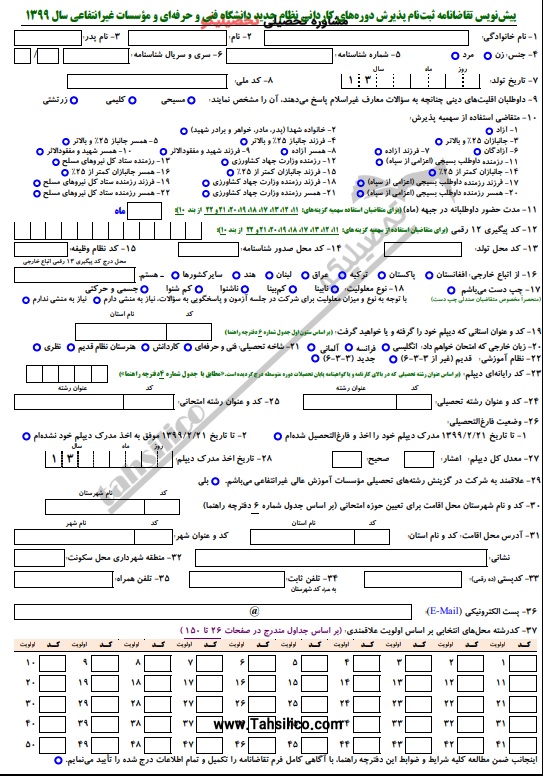 پیش‌نویس تقاضانامه ثبت‌نام پذیرش دوره‌های کاردانی نظام جدید دانشگاه فنی و حرفه‌ای و مؤسسات غیرانتفاعی سال ۱۳۹۹
مشاوره تحصیلی تحصیلیکو
۱- نام خانوادگی: ۲- نام: ۳- نام پدر:
۴- جنس: زن مرد ۵- شماره شناسنامه: ۶- سری و سریال شناسنامه: /
۷- تاریخ تولد: روز ماه سال ۱ ۳ ۸- کد ملی:
۹- داوطلبان اقلیت‌های دینی چنانچه به سؤالات معارف غیراسلام پاسخ می‌دهند، آن را مشخص نمایند: مسیحی کلیمی زرتشتی
۱۰- متقاضی استفاده از سهمیه پذیرش:
۱- آزاد ۲- خانواده شهدا (پدر، مادر، خواهر و برادر شهید)
۳- جانبازان ۲۵٪ و بالاتر ۴- فرزند جانباز ۲۵٪ و بالاتر ۵- همسر جانباز ۲۵٪ و بالاتر
۶- آزادگان ۷- فرزند آزاده ۸- همسر آزاده ۹- فرزند شهید و مفقودالاثر ۱۰- همسر شهید و مفقودالاثر
۱۱- رزمنده داوطلب بسیجی (اعزامی از سپاه) ۱۲- رزمنده وزارت جهاد کشاورزی ۱۳- رزمنده ستاد کل نیروهای مسلح
۱۴- جانبازان کمتر از ۲۵٪ ۱۵- فرزند جانبازان کمتر از ۲۵٪ ۱۶- همسر جانبازان کمتر از ۲۵٪
۱۷- فرزند رزمنده داوطلب بسیجی (اعزامی از سپاه) ۱۸- فرزند رزمنده وزارت جهاد کشاورزی ۱۹- فرزند رزمنده ستاد کل نیروهای مسلح
۲۰- همسر رزمنده داوطلب بسیجی (اعزامی از سپاه) ۲۱- همسر رزمنده وزارت جهاد کشاورزی ۲۲- همسر رزمنده ستاد کل نیروهای مسلح
۱۱- مدت حضور داوطلبانه در جبهه (ماه) (برای متقاضیان استفاده سهمیه گزینه‌های: ۱۱، ۱۲، ۱۳، ۱۷، ۱۸، ۱۹، ۲۰، ۲۱ و ۲۲ از بند ۱۰): ماه
۱۲- کد پیگیری ۱۲ رقمی (برای متقاضیان استفاده از سهمیه گزینه‌های: ۱۱، ۱۲، ۱۳، ۱۷، ۱۸، ۱۹، ۲۰، ۲۱ و ۲۲ از بند ۱۰):
۱۳- کد محل تولد: ۱۴- کد محل صدور شناسنامه: ۱۵- کد نظام وظیفه:
محل درج کد پیگیری ۱۳ رقمی اتباع خارجی
۱۶- از اتباع خارجی: افغانستان پاکستان ترکیه عراق لبنان هند سایر کشورها هستم.
۱۷- چپ دست می‌باشم ۱۸- نوع معلولیت: نابینا کم‌بینا ناشنوا کم شنوا جسمی و حرکتی
(منحصراً مخصوص متقاضیان صندلی چپ دست) با توجه به نوع و میزان معلولیت برای شرکت در جلسه آزمون و پاسخگویی به سؤالات، نیاز به منشی دارم نیاز به منشی ندارم
کد نام استان
۱۹- کد و عنوان استانی که دیپلم خود را گرفته و یا خواهید گرفت: (بر اساس ستون اول جدول شماره ۶ دفترچه راهنما)
۲۰- زبان خارجی که امتحان خواهم داد: انگلیسی فرانسه آلمانی ۲۱- شاخه تحصیلی: فنی و حرفه‌ای کاردانش هنرستان نظام قدیم نظری
۲۲- نظام آموزشی: قدیم (غیر از ۳-۳-۶) جدید (۳-۳-۶)
۲۳- کد رایانه‌ای دیپلم: (بر اساس عنوان رشته تحصیلی که در بالای کارنامه و یا گواهینامه پایان تحصیلات دوره متوسطه درج گردیده است. «مطابق با جدول شماره ۴ دفترچه راهنما»)
کد عنوان رشته کد عنوان رشته
۲۴- کد و عنوان رشته تحصیلی: ۲۵- کد و عنوان رشته امتحانی:
۲۶- وضعیت فارغ‌التحصیلی:
۱- تا تاریخ ۱۳۹۹/۲/۲۱ مدرک دیپلم خود را اخذ و فارغ‌التحصیل شده‌ام ۲- تا تاریخ ۱۳۹۹/۲/۲۱ موفق به اخذ مدرک دیپلم خود نشده‌ام
۲۷- معدل کل دیپلم: اعشار: صحیح: ۲۸- تاریخ اخذ مدرک دیپلم: روز ماه سال ۱ ۳
۲۹- علاقمند به شرکت در گزینش رشته‌های تحصیلی مؤسسات آموزش عالی غیرانتفاعی می‌باشم. بلی
کد نام شهرستان
۳۰- کد و نام شهرستان محل اقامت برای تعیین حوزه امتحانی (بر اساس جدول شماره ۶ دفترچه راهنما)
کد نام استان کد نام شهر
۳۱- آدرس محل اقامت: کد و نام استان: کد و عنوان شهر:
نشانی: ۳۲- منطقه شهرداری محل سکونت:
۳۳- کدپستی (ده رقمی): ۳۴- تلفن ثابت: ۳۵- تلفن همراه:
به همراه کد شهرستان
۳۶- پست الکترونیکی (E-Mail): @
۳۷- کدرشته محل‌های انتخابی بر اساس اولویت علاقمندی: (بر اساس جداول مندرج در صفحات ۲۶ تا ۱۵۰)
اولویت کد اولویت کد اولویت کد اولویت کد اولویت کد اولویت کد اولویت کد اولویت کد اولویت کد اولویت کد
۱ ۲ ۳ ۴ ۵ ۶ ۷ ۸ ۹ ۱۰
۱۱ ۱۲ ۱۳ ۱۴ ۱۵ ۱۶ ۱۷ ۱۸ ۱۹ ۲۰
۲۱ ۲۲ ۲۳ ۲۴ ۲۵ ۲۶ ۲۷ ۲۸ ۲۹ ۳۰
۳۱ ۳۲ ۳۳ ۳۴ ۳۵ ۳۶ ۳۷ ۳۸ ۳۹ ۴۰
www.Tahsilico.com
۴۱ ۴۲ ۴۳ ۴۴ ۴۵ ۴۶ ۴۷ ۴۸ ۴۹ ۵۰
اینجانب ضمن مطالعه کلیه شرایط و ضوابط این دفترچه راهنما، با آگاهی کامل فرم تقاضانامه را تکمیل و تمام اطلاعات درج شده را تأیید می‌نمایم.
tahsilico
تحصیلیکو